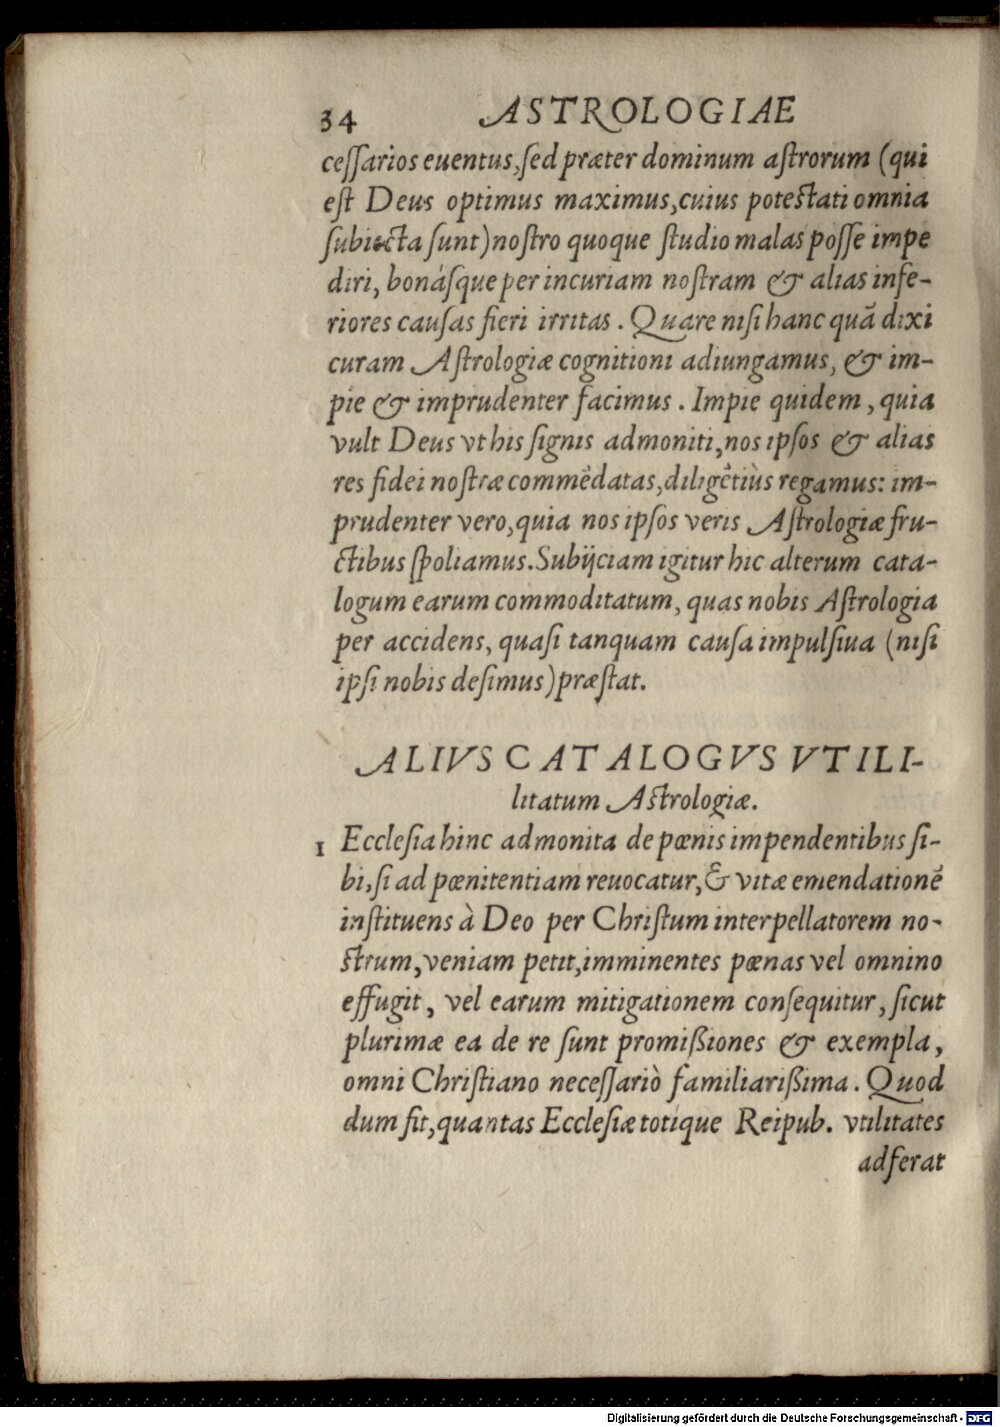 34 ASTROLOGIAE
ceſſarios euentus, ſed præter dominum aſtrorum (qui
eſt Deus optimus maximus, cuius poteſtati omnia
ſubiecta ſunt) noſtro quoque ſtudio malas poſſe impe
diri, bonáſque per incuriam noſtram & alias infe-
riores cauſas fieri irritas. Quare niſi hanc quã dixi
curam Aſtrologiæ cognitioni adiungamus, & im-
pie & imprudenter facimus. Impie quidem, quia
vult Deus vt his ſignis admoniti, nos ipſos & alias
res fidei noſtræ commẽdatas, diligẽtiùs regamus: im-
prudenter vero, quia nos ipſos veris Aſtrologiæ fru-
ctibus ſpoliamus. Subijciam igitur hic alterum cata-
logum earum commoditatum, quas nobis Aſtrologia
per accidens, quaſi tanquam cauſa impulſiua (niſi
ipſi nobis deſimus) præſtat.
ALIVS CATALOGVS VTILI-
litatum Aſtrologiæ.
1 Eccleſia hinc admonita de pœnis impendentibus ſi-
bi, ſi ad pœnitentiam reuocatur, & vitæ emendationẽ
inſtituens à Deo per Chriſtum interpellatorem no-
ſtrum, veniam petit, imminentes pœnas vel omnino
effugit, vel earum mitigationem conſequitur, ſicut
plurimæ ea de re ſunt promißiones & exempla,
omni Chriſtiano neceſſariò familiarißima. Quod
dum fit, quantas Eccleſiæ totíque Reipub. vtilitates
adferat
Digitalisierung gefördert durch die Deutsche Forschungsgemeinschaft - DFG